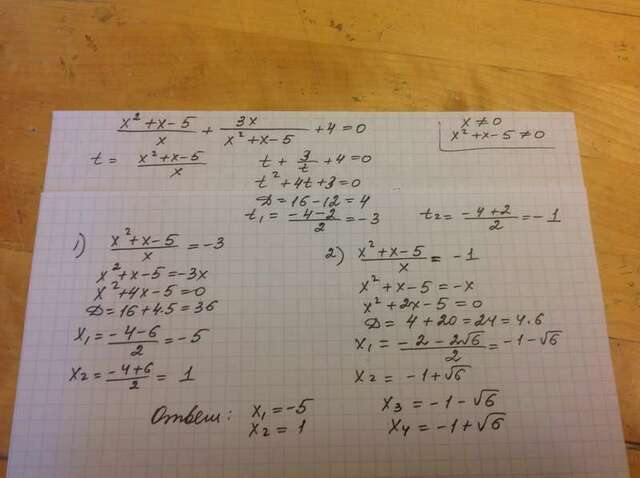 (x²+x-5)/x + 3x/(x²+x-5) + 4 = 0
x ≠ 0
x²+x-5 ≠ 0
t = (x²+x-5)/x
t + 3/t + 4 = 0
t²+4t+3=0
D=16-12=4
t₁ = (-4-2)/2 = -3
t₂ = (-4+2)/2 = -1
1) (x²+x-5)/x = -3
x²+x-5=-3x
x²+4x-5=0
D=16+4·5=36
x₁ = (-4-6)/2 = -5
x₂ = (-4+6)/2 = 1
2) (x²+x-5)/x = -1
x²+x-5=-x
x²+2x-5=0
D = 4+20=24=4·6
x₁ = (-2-2√6)/2 = -1-√6
x₂ = -1+√6
Ответ: x₁=-5
x₂=1
x₃ = -1-√6
x₄ = -1+√6